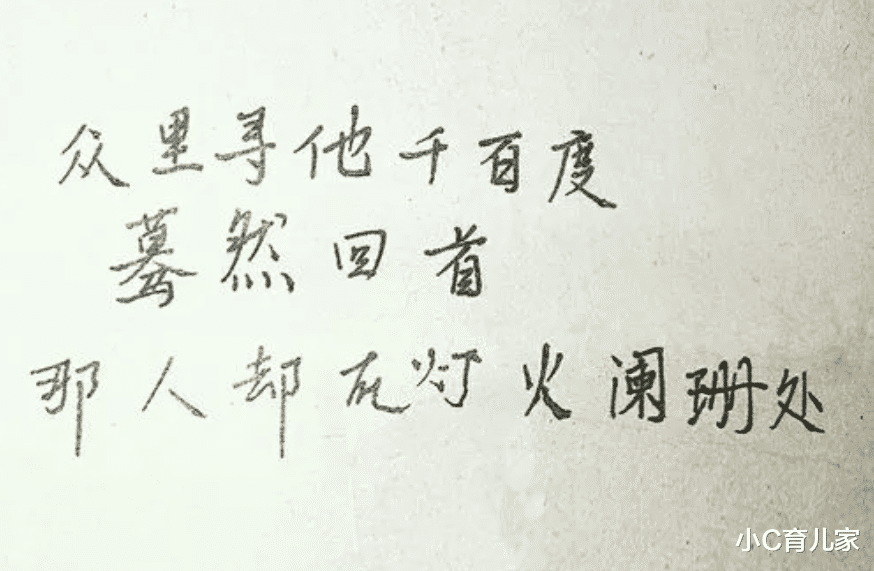 众里寻他千百度
蓦然回首
那人却在灯火阑珊处
小C育儿家